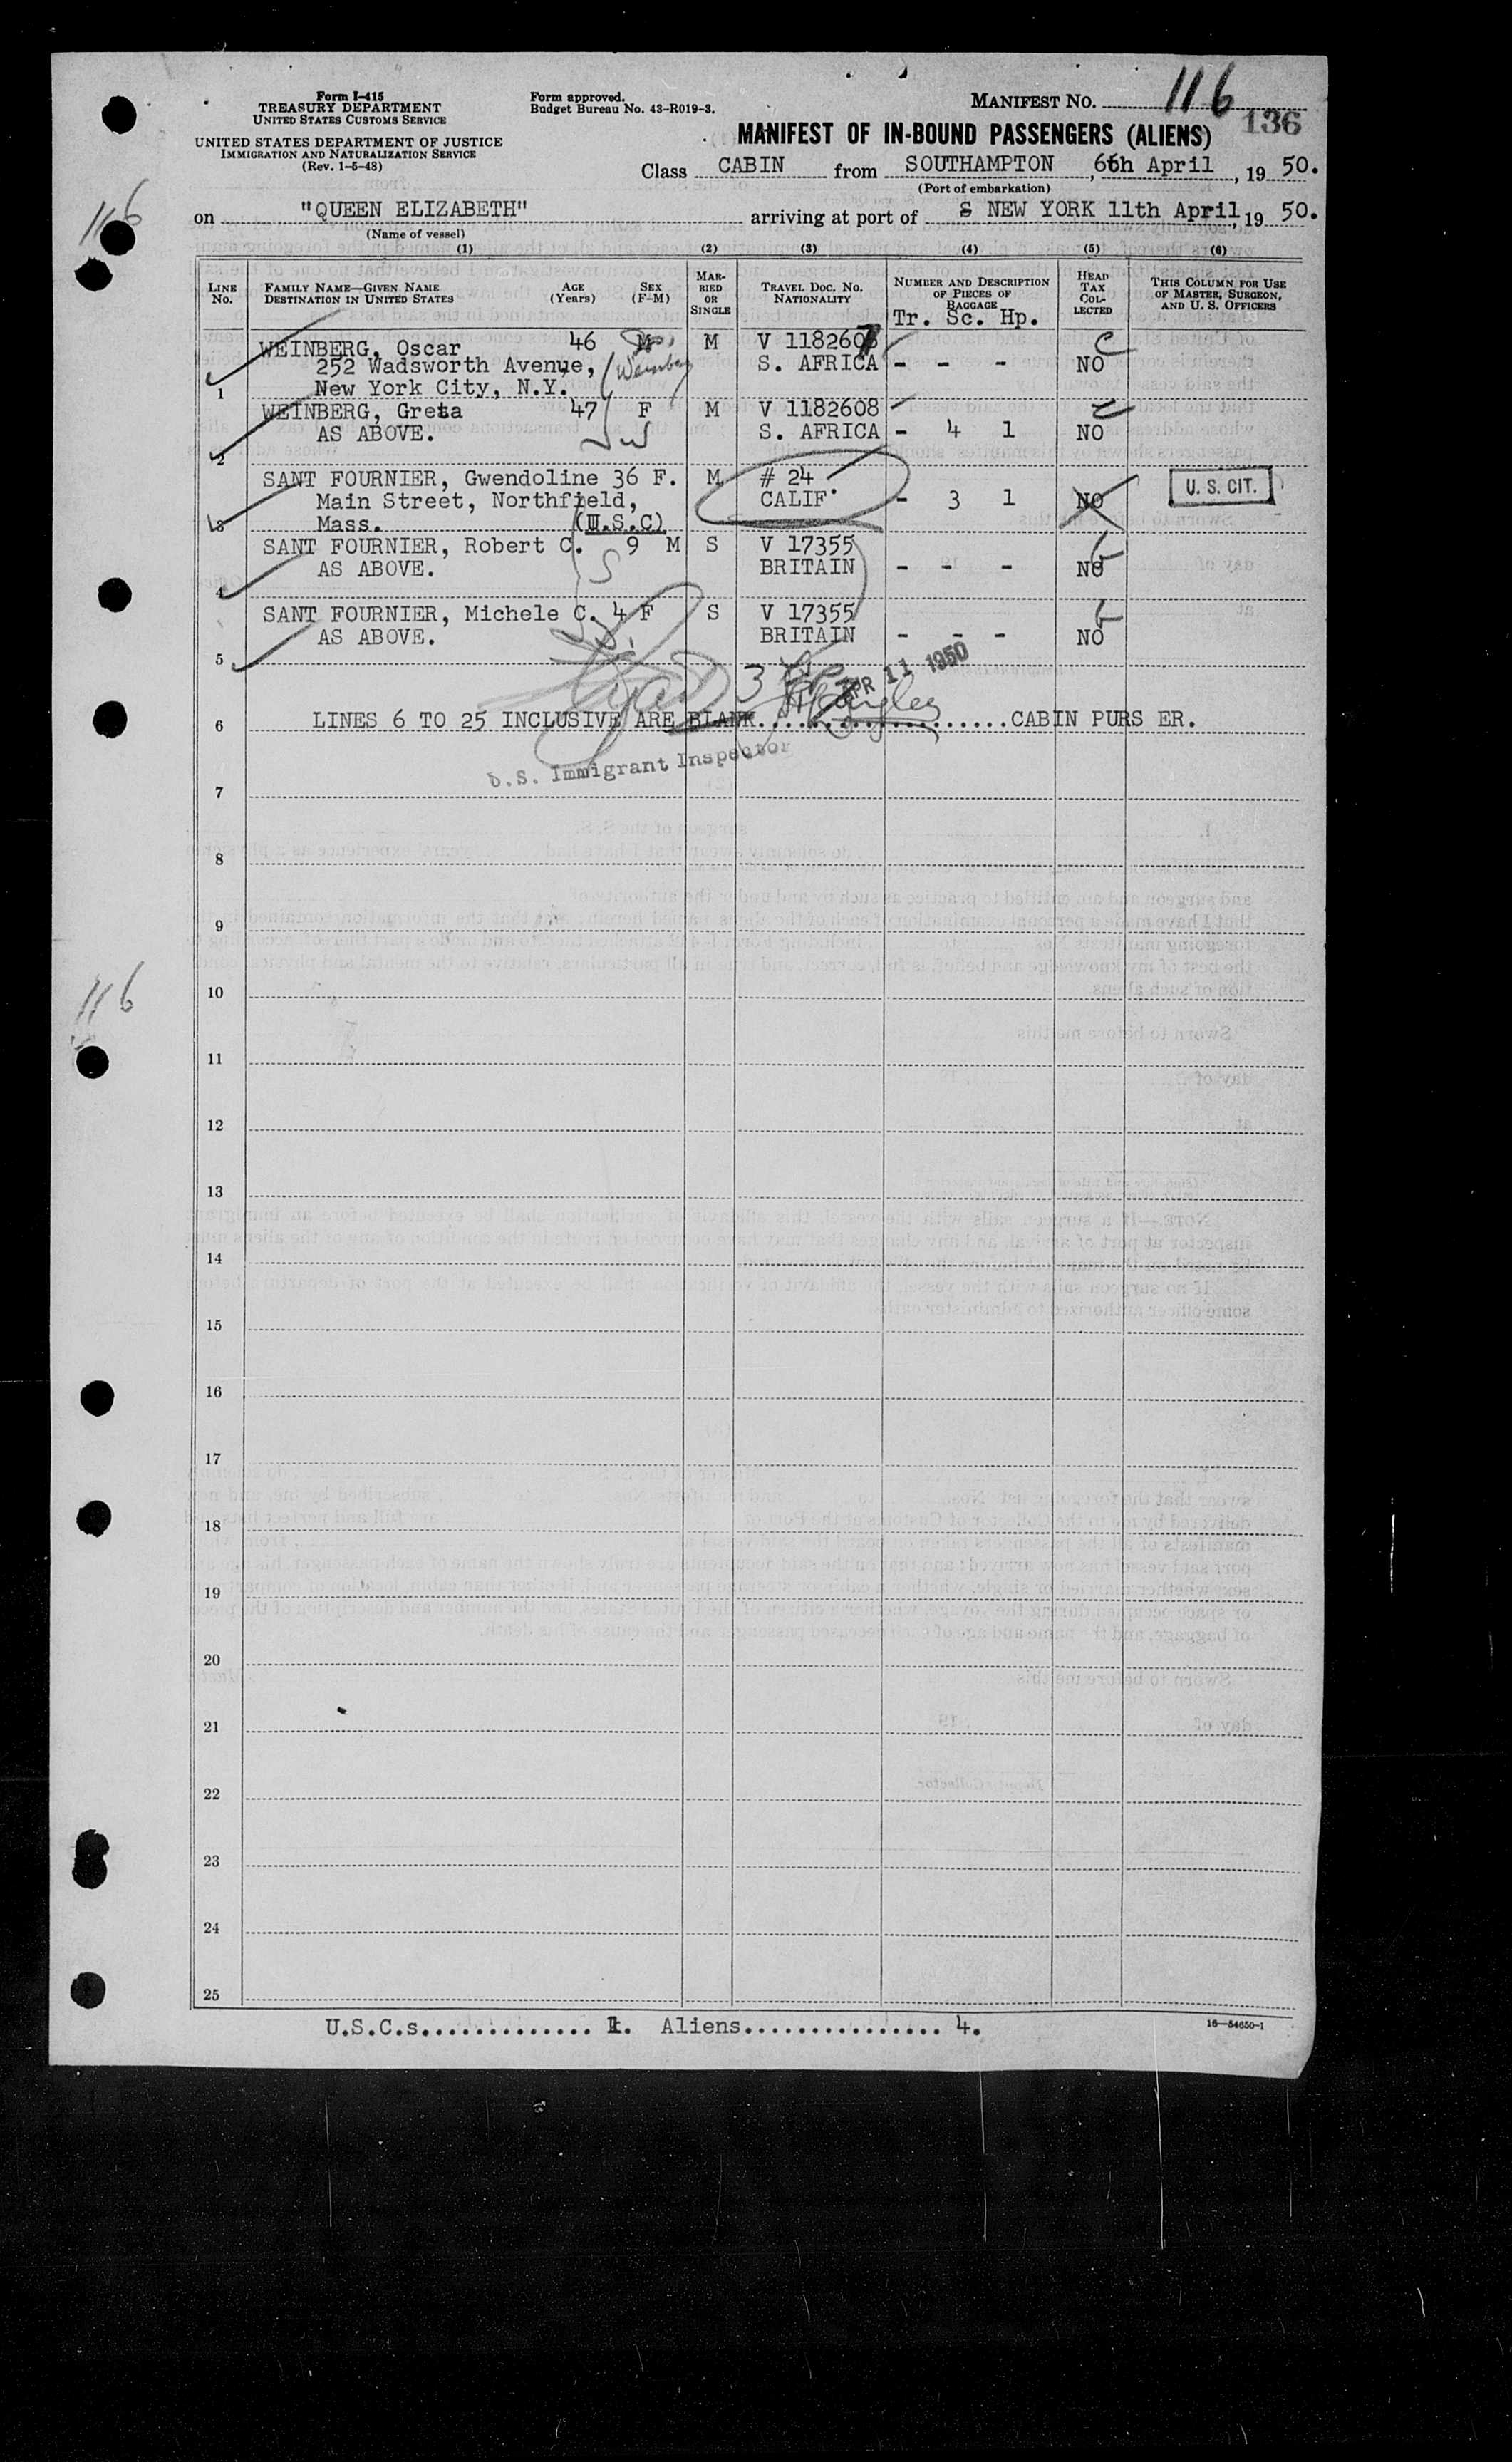 Form I-415
TREASURY DEPARTMENT
UNITED STATES CUSTOMS SERVICE
UNITED STATES DEPARTMENT OF JUSTICE
IMMIGRATION AND NATURALIZATION SERVICE
(Rev. 1-5-48)
Form approved.
Budget Bureau No. 43-R019-3.
MANIFEST NO. 116
136
MANIFEST OF IN-BOUND PASSENGERS (ALIENS)
Class CABIN from SOUTHAMPTON, 6th April, 19 50.
(Port of embarkation)
116
on "QUEEN ELIZABETH" arriving at port of NEW YORK 11th April, 19 50.
(Name of vessel)
(1) (2) (3) (4) (5) (6)
LINE No. FAMILY NAME—GIVEN NAME DESTINATION IN UNITED STATES AGE (Years) SEX (F-M) MARRIED OR SINGLE TRAVEL DOC. NO. NATIONALITY NUMBER AND DESCRIPTION OF PIECES OF BAGGAGE HEAD TAX COLLECTED THIS COLUMN FOR USE OF MASTER, SURGEON, AND U. S. OFFICERS
Tr. Sc. Hp.
WEINBERG, Oscar 46 M M V 1182607 C
252 Wadsworth Avenue, Weinberg S. AFRICA - - - NO
1 New York City, N.Y.
WEINBERG, Greta 47 F M V 1182608 C
AS ABOVE. S. AFRICA - 4 1 NO
2
SANT FOURNIER, Gwendoline 36 F. M # 24 U. S. CIT.
Main Street, Northfield, CALIF. - 3 1 NO
3 Mass. (U.S.C)
SANT FOURNIER, Robert C. 9 M S V 17355
AS ABOVE. BRITAIN - - - NO
4
SANT FOURNIER, Michele C. 4 F S V 17355
AS ABOVE. BRITAIN - - - NO
5
3 APR 11 1950
6 LINES 6 TO 25 INCLUSIVE ARE BLANK....................CABIN PURS ER.
U.S. Immigrant Inspector
7
8
9
116
10
11
12
13
14
15
16
17
18
19
20
21
22
23
24
25
U.S.C.s.............. 1. Aliens................ 4.
16—54650-1